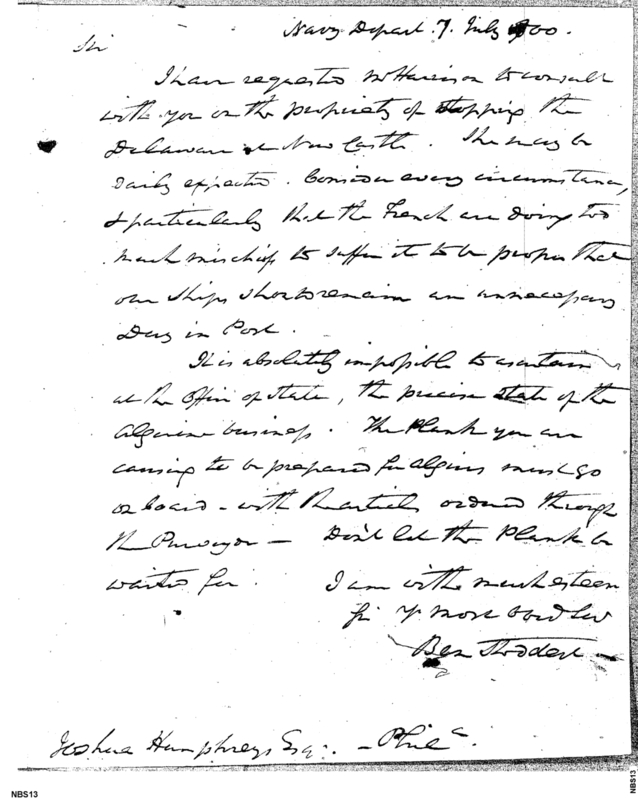 Navy Depart. 7. July 1800.
Sir
I have requested Mr Harrison to consult
with you on the propriety of stopping the
Delaware at New Castle. She may be
daily expected. Consider every circumstance,
& particularly that the French are doing too
much mischief to suffer it to be proper that
our ships should remain an unnecessary
Day in Port.
It is absolutely impossible to ascertain
at the Office of State, the precise State of the
Algerine business. The Plank you are
causing to be prepared for Algiers must go
on board - with the articles ordered through
the Purveyor — Don't let the Plank be
waited for.
I am with much esteem
Sir Yr most Obed Ser
Ben Stoddert
Joshua Humphreys Esq. - Phila.
NBS13
NBS13